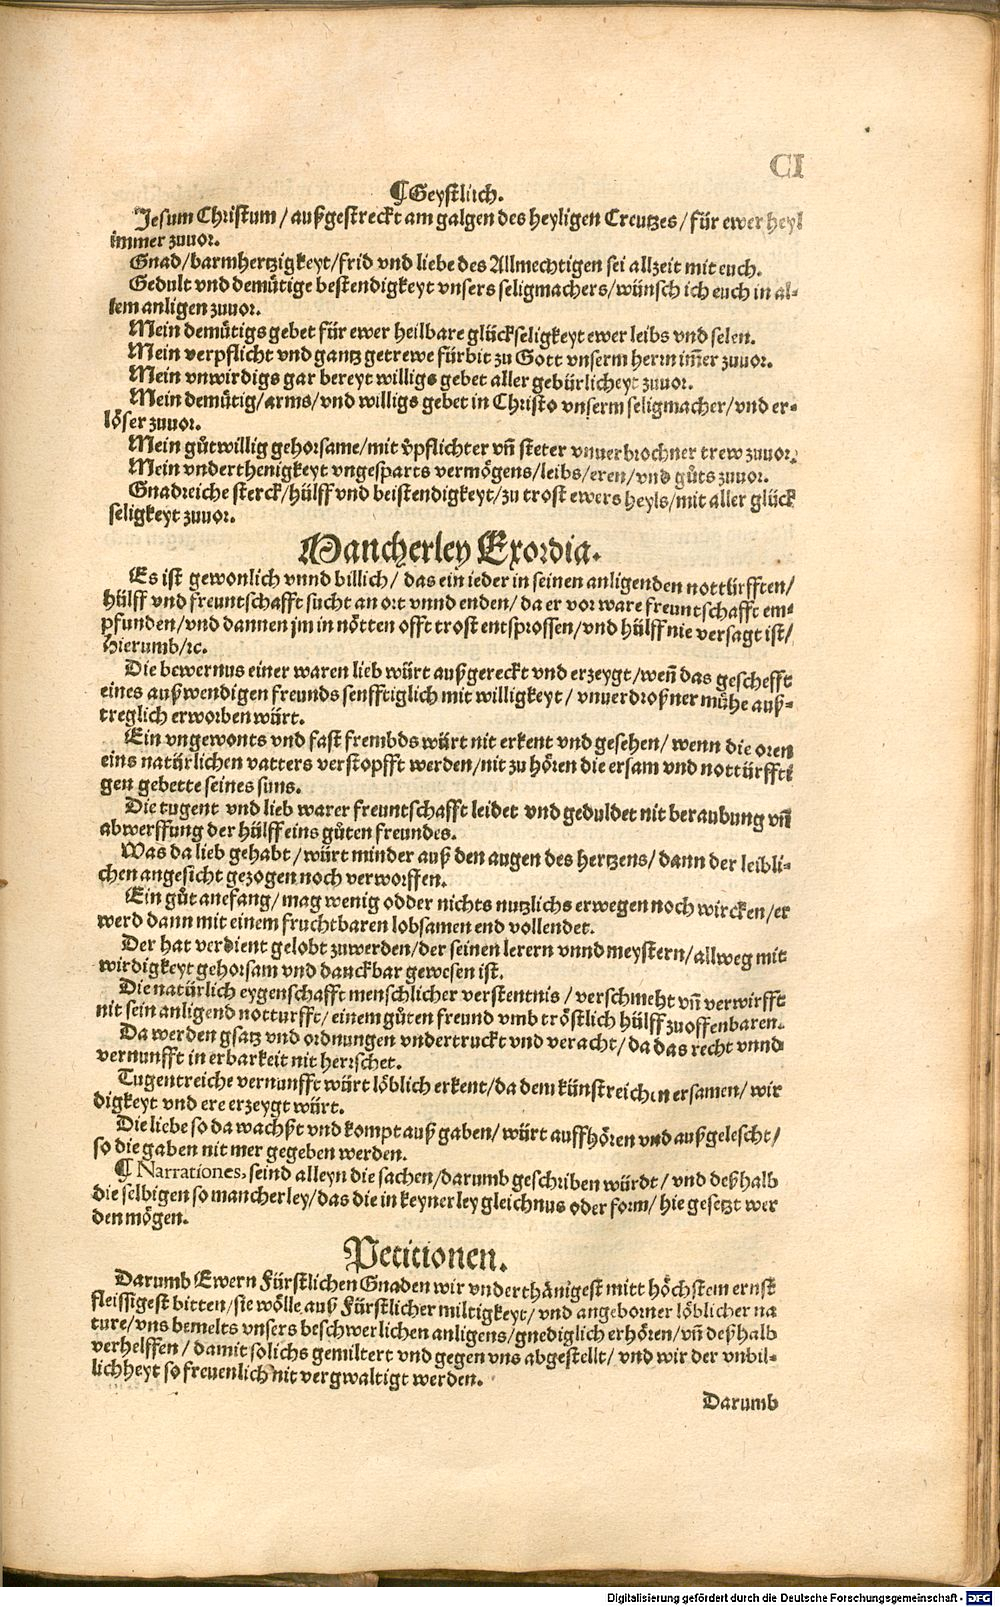 CI
¶Geystlich.
Jesum Christum / außgestreckt am galgen des heyligen Creutzes / für ewer heyl
immer zuuor.
Gnad/barmhertzigkeyt/frid vnd liebe des Allmechtigen sei allzeit mit euch.
Gedult vnd demütige bestendigkeyt vnsers seligmachers/wünsch ich euch in al-
lem anligen zuuor.
Mein demütigs gebet für ewer heilbare glückseligkeyt ewer leibs vnd selen.
Mein verpflicht vnd gantz getrewe fürbit zu Gott vnserm herrn im̃er zuuor.
Mein vnwirdigs gar bereyt willigs gebet aller gebürlicheyt zuuor.
Mein demütig/arms/vnd willigs gebet in Christo vnserm seligmacher/vnd er-
löser zuuor.
Mein gůtwillig gehorsame/mit v̂pflichter vñ steter vnuerbrochner trew zuuor.
Mein vnderthenigkeyt vngesparts vermögens/leibs/eren/vnd gůts zuuor.
Gnadreiche sterck/hülff vnd beistendigkeyt/zu trost ewers heyls/mit aller glück
seligkeyt zuuor.
Mancherley Exordia.
Es ist gewonlich vnnd billich / das ein ieder in seinen anligenden nottürfften/
hülff vnd freuntschafft sucht an ort vnnd enden/da er vor ware freuntschafft em-
pfunden/vnd dannen jm in nötten offt trost entsprossen/vnd hülff nie versagt ist/
Hierumb/ꝛc.
Die bewernus einer waren lieb würt außgereckt vnd erzeygt/weñ das geschefft
eines außwendigen freunds senfftiglich mit willigkeyt / vnuerdroßner mühe auß-
treglich erworben würt.
Ein vngewonts vnd fast frembds würt nit erkent vnd gesehen/ wenn die oren
eins natürlichen vatters verstopfft werden/nit zu hören die ersam vnd nottürffti
gen gebette seines suns.
Die tugent vnd lieb warer freuntschafft leidet vnd geduldet nit beraubung vñ
abwerffung der hülff eins gůten freundes.
Was da lieb gehabt /würt minder auß den augen des hertzens/ dann der leibli-
chen angesicht gezogen noch verworffen.
Ein gůt anefang/ mag wenig odder nichts nutzlichs erwegen noch wircken/er
werd dann mit einem fruchtbaren lobsamen end vollendet.
Der hat verdient gelobt zuwerden/der seinen lerern vnnd meystern/allweg mit
wirdigkeyt gehorsam vnd danckbar gewesen ist.
Die natürlich eygenschafft menschlicher verstentnis / verschmeht vñ verwirfft
nit sein anligend notturfft/ einem gůten freund vmb tröstlich hülff zu offenbaren.
Da werden gsatz vnd ordnungen vndertruckt vnd veracht/da das recht vnnd
vernunfft in erbarkeit nit herrschet.
Tugentreiche vernunfft würt löblich erkent/da dem künstreichen ersamen/ wir
digkeyt vnd ere erzeygt würt.
Die liebe so da wachßt vnd kompt auß gaben/ würt auffhören vnd außgelescht/
so die gaben nit mer gegeben werden.
¶ Narrationes, seind alleyn die sachen/darumb geschriben würdt / vnd deßhalb
die selbigen so mancherley/das die in keynerley gleichnus oder form/ hie gesetzt wer
den mögen.
Petitionen.
Darumb Ewern Fürstlichen Gnaden wir vnderthänigest mitt höchstem ernst
fleissigest bitten/sie wölle auß Fürstlicher miltigkeyt/ vnd angeborner löblicher na
ture/vns bemelts vnsers beschwerlichen anligens/gnediglich erhören/vñ deßhalb
verhelffen / damit solichs gemiltert vnd gegen vns abgestellt/ vnd wir der vnbil-
lichheyt so freuenlich nit vergwaltigt werden.
Darumb
Digitalisierung gefördert durch die Deutsche Forschungsgemeinschaft - DFG